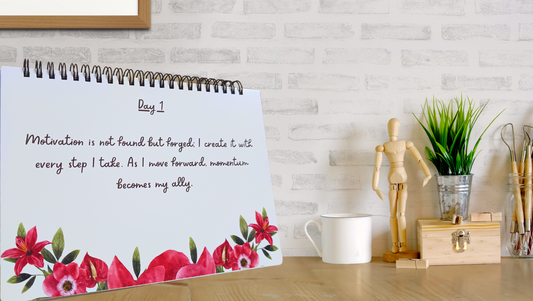 Day 1
Motivation is not found but forged; I create it with
every step I take. As I move forward, momentum
becomes my ally.